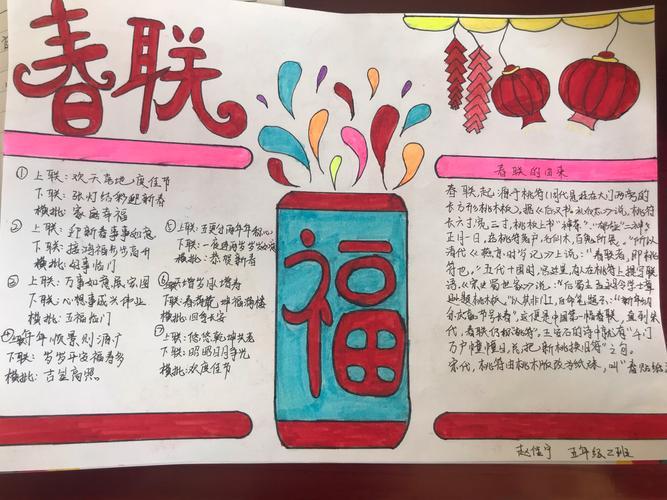 春联
① 上联：欢天喜地度佳节
下联：张灯结彩迎新春
横批：家庭幸福
② 上联：迎新春事事如意
下联：接鸿福步步高升
横批：好事临门
③ 上联：万事如意展宏图
下联：心想事成兴伟业
横批：五福临门
④ 上联：年年
下联：岁岁平安福寿多
横批：吉星高照
⑤ 上联：五更分两年年
下联：一夜
横批：恭贺新春
增岁月 增寿
下联：春满乾坤福满楼
横批：四季
⑦ 上联：悠悠乾坤共老
下联：昭昭日月争光
横批：欢度佳节
福
春联的由来
春联，起源于桃符（周代悬挂在大门两旁的
长方形桃木板）。据《后汉书·礼仪志》说，桃符
长六寸，宽三寸，桃木板上书“神荼”、“郁垒”二神。
正月一日，造桃符著户，
清代《燕京时岁记》上说：“春联者，即桃
符也。”五代十国时，宫廷里，有人在桃符上提写联
语。《宋史 》说：后蜀主孟昶令学士
题桃木板，“以其非工，自命笔题云：‘新年纳
节号长春’”，这便是中国第一幅春联。直到宋
代，春联仍称“桃符”。王安石的诗中就有“千门
万户曈曈日，总把新桃换旧符”之句。
宋代，桃符由桃木板改为纸张，叫“春贴纸
赵佳宁 五年级二班